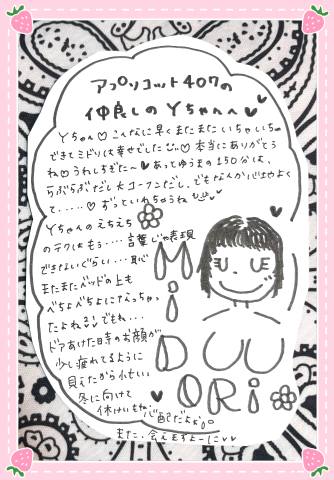 アプリコット407の
仲良しのYちゃんへ♥
Yちゃん♡こんなに早くまたまたいちゃいちゃ
できてミドリは幸せでした 本当にありがとう
ね♡うれしすぎた〜♥あってゆうまの150分は、
らぶらぶだし大コーフンだし、でもなんか心地よく
て.....♡ずっといれちゃうね
Yちゃんのえちえち
のテクはもう...言葉じゃ表現
できないぐらい...恥
またまたベッドの上も
べちょべちょに
たよね でもね...
ドアあけた日寺のお顔が
少し疲れてるように
見えたから
冬に向けて
心配だよ
また、会えますよーに♥♥
MiDORi